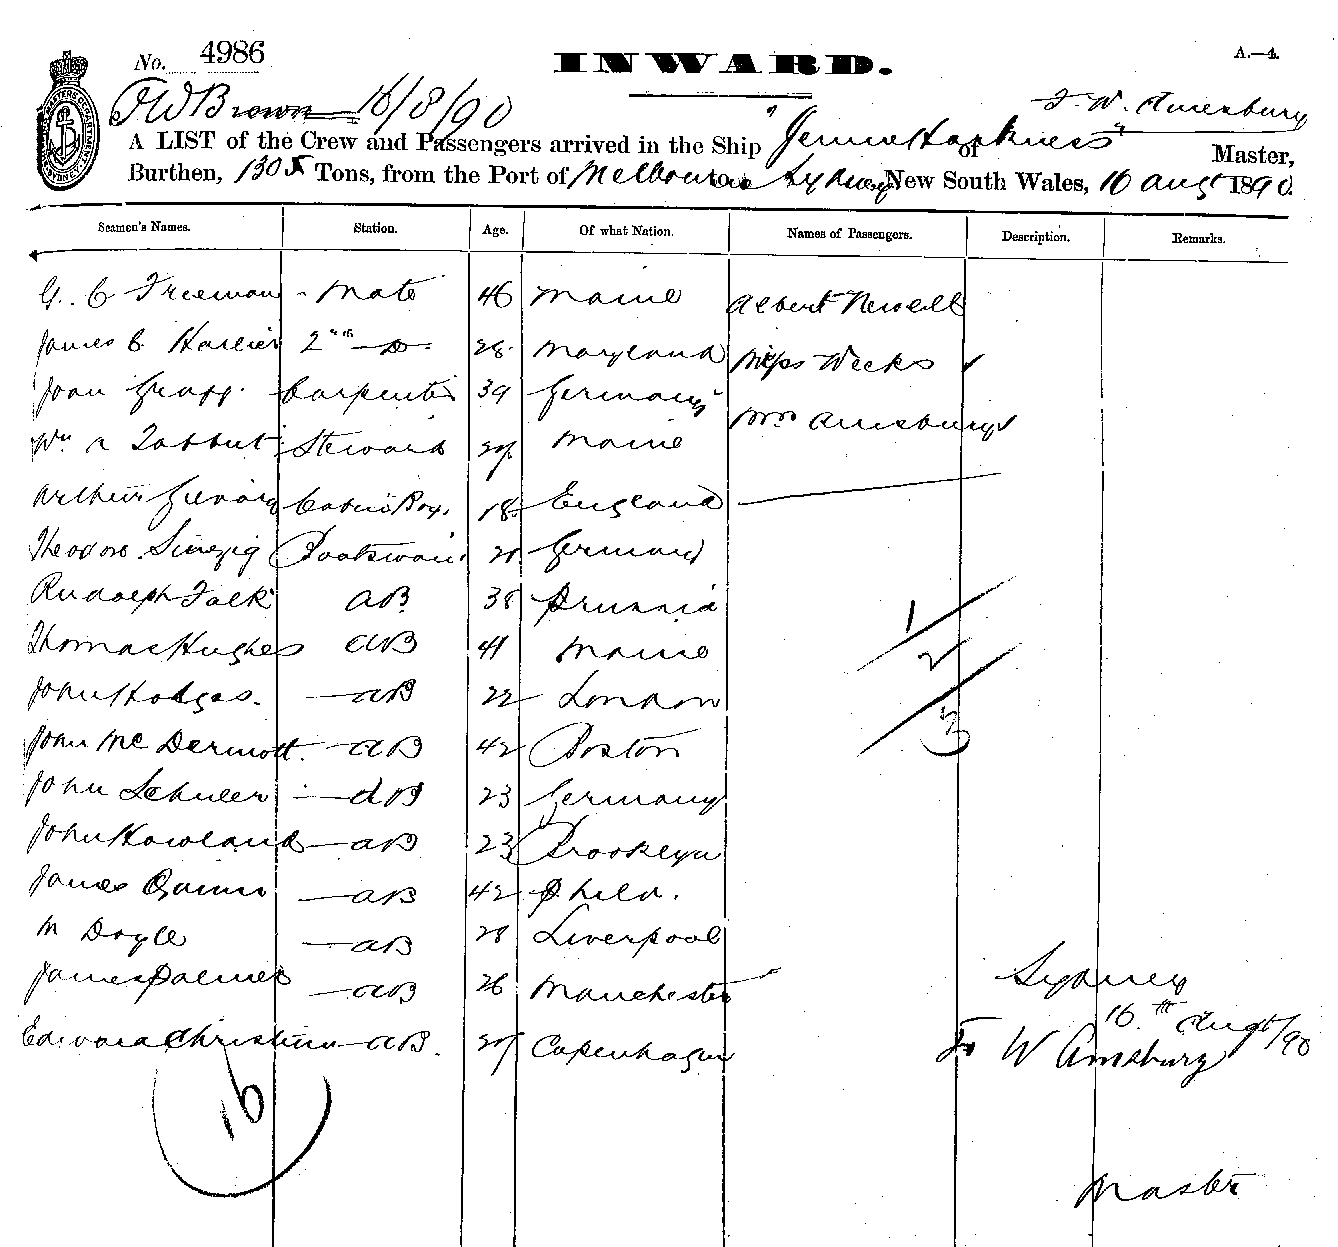 No. 4986
INWARD.
A.—4.
F W Brown 16/8/90
F. W. Amesbury
A LIST of the Crew and Passengers arrived in the Ship "Jennie Harkness" of Master,
Burthen, 1305 Tons, from the Port of Melbourne to Sydney New South Wales, 16 Augst 1890.
Seamen's Names. Station. Age. Of what Nation. Names of Passengers. Description. Remarks.
G. C Freeman - Mate 46 Maine Albert Newell
James C 2nd Do 28 Maryland Miss Weeks
John Carpenter 39 Germany Mrs Amesbury
Wm Steward 27 Maine
Arthur Cabin Boy. 18 England
Theodore Boatswain 28 Germany
Rudolph Falk AB 38 Prussia
Thomas Hughes AB 41 Maine
John Hodges. AB 22 London
John McDermott. AB 42 Boston
John Schuler AB 23 Germany
John Howland AB 23 Brooklyn
James Quinn AB 42 Phila.
M Doyle AB 28 Liverpool
James Palmer AB 26 Manchester
Edward Christian AB. 27 Copenhagen
1
2
3
16
Sydney
16th Augst/90
F W Amesbury
Master